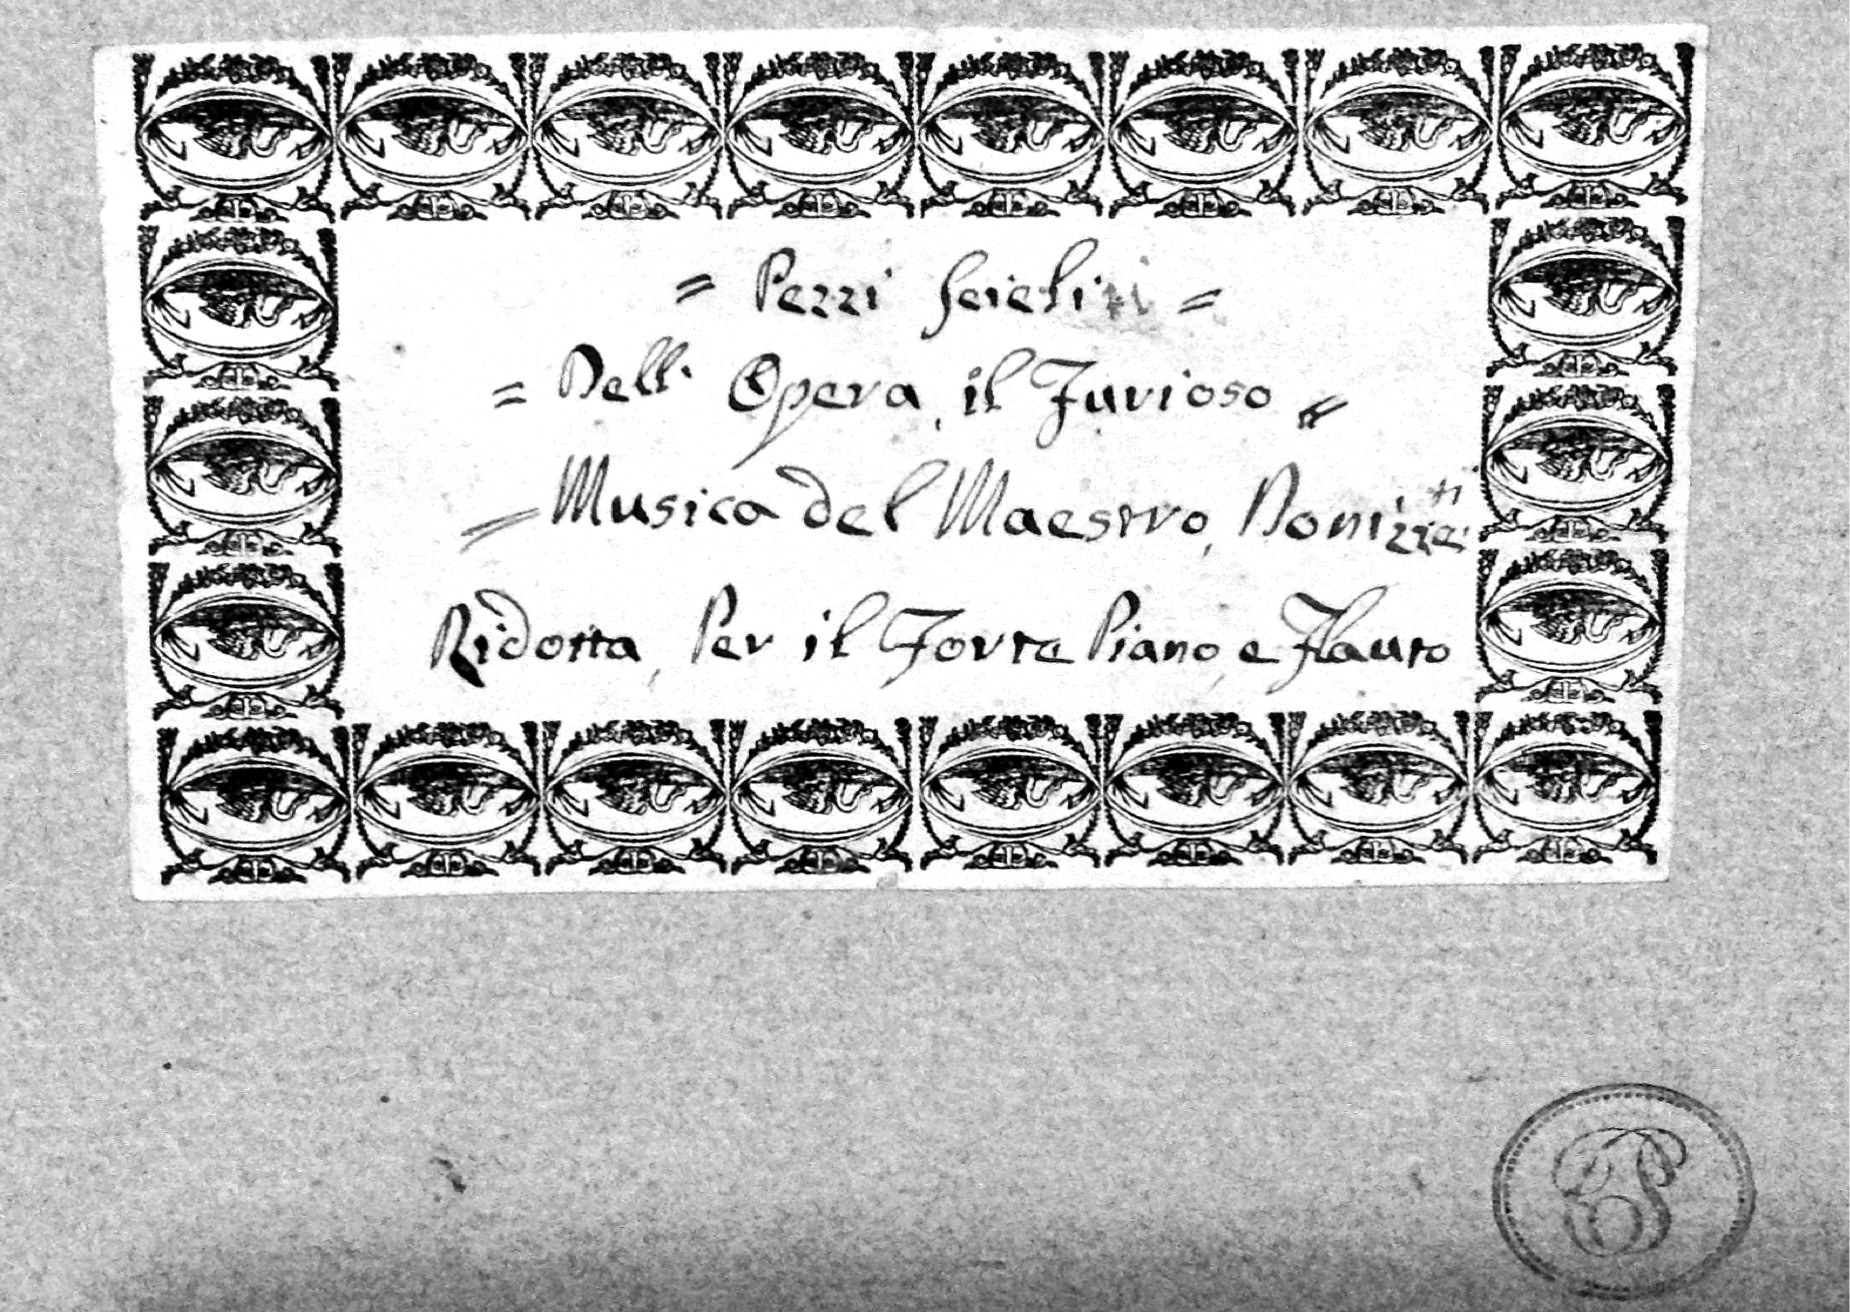 = Pezzi Scielti =
= Dell' Opera, il Furioso =
= Musica del Maestro, Donizzetti
Ridotta, Per il Forte Piano, e Flauto